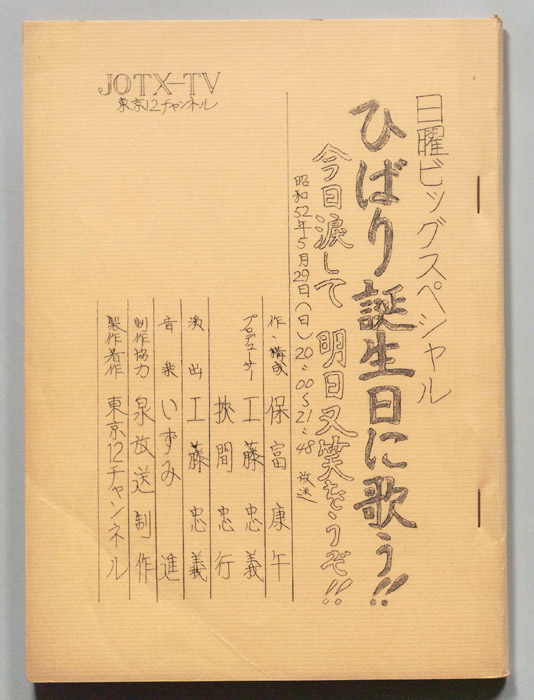 日曜ビッグスペシャル
ひばり誕生日に歌う!!
今日涙して 明日又笑をうぞ!!
昭和52年5月29日(日)20:00〜21:48 放送
作・構成 保富康午
プロデューサー 工藤忠義
挾間忠行
演出 工藤忠義
音楽 いずみ 進
制作協力 泉放送制作
製作著作 東京12チャンネル
JOTX-TV
東京12チャンネル